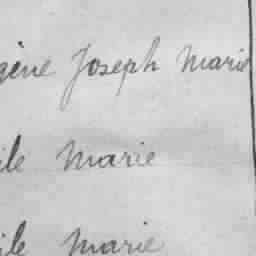 gène Joseph Marie
ile Marie
ile Marie